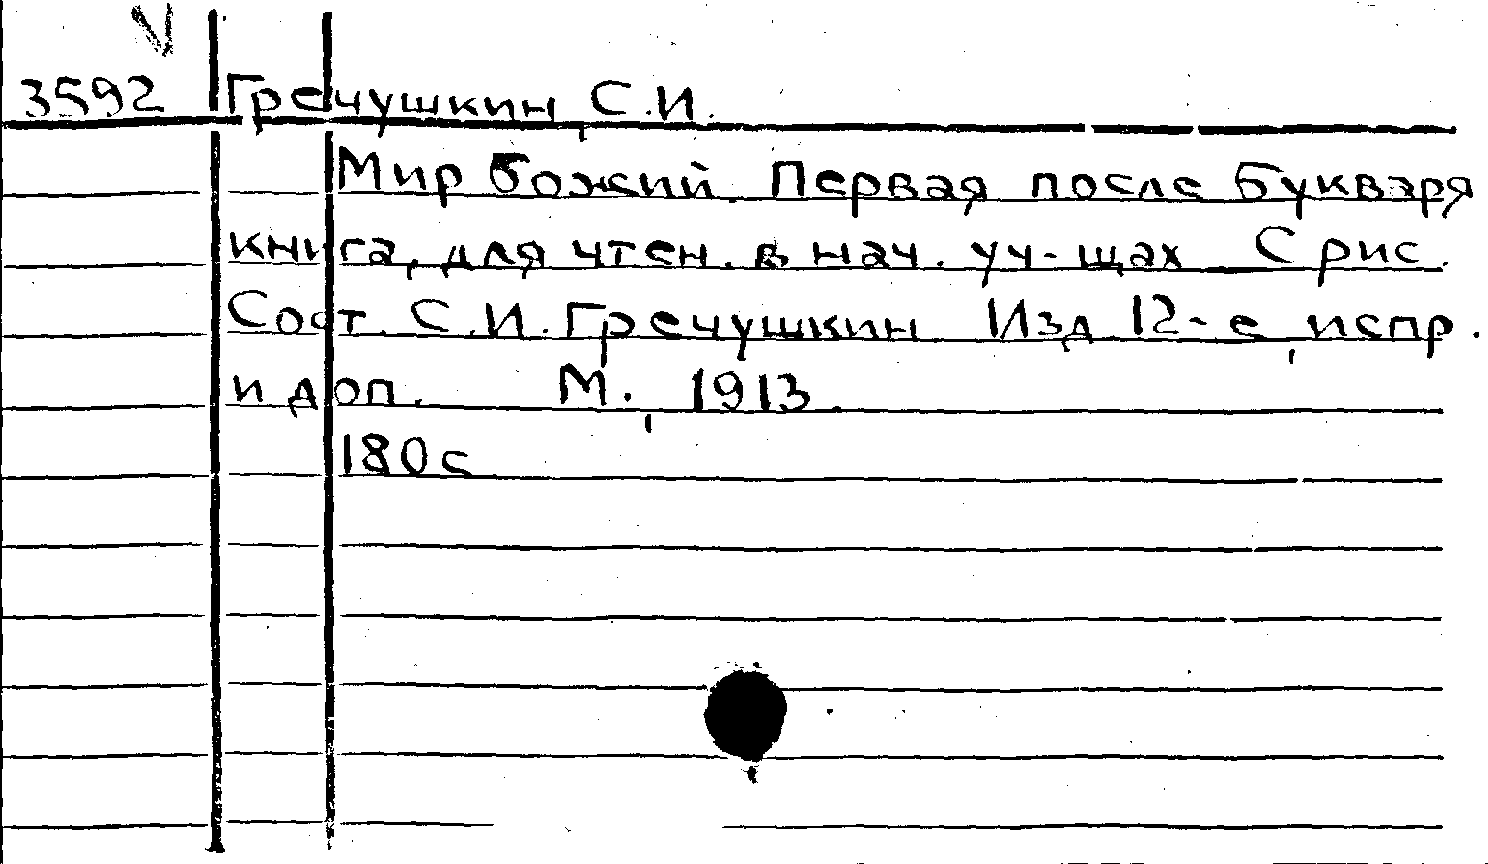 3592 Гречушкин, С.И.
Мир божий. Первая после букваря
книга, для чтен. в нач. уч-щах С рис.
Сост. С.И. Гречушкин Изд 12-е, испр.
и доп. М., 1913.
180 с